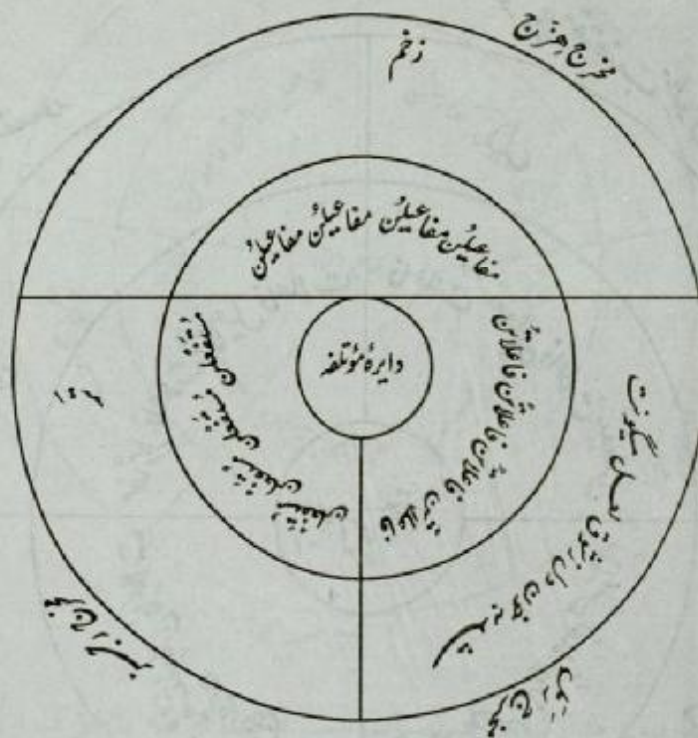 مخرج هزج
زخم
مفاعیلُن مفاعیلُن مفاعیلُن مفاعیلُن
دایرهٔ مؤتلفه
فاعلاتُن فاعلاتُن فاعلاتُن فاعلاتُن
مُستَفعِلُن مُستَفعِلُن مُستَفعِلُن مُستَفعِلُن
لعل میگونت
مخرج رجز
مخرج رمل